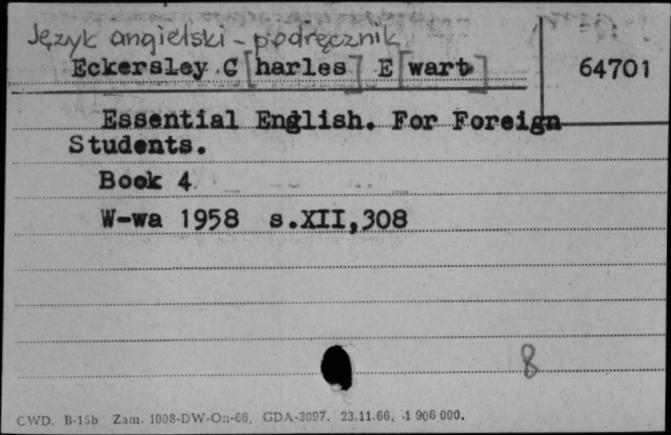 Język angielski - podręcznik
Eckersley C[harles] E[wart]
64701
Essential English. For Foreign
Students.
Book 4
W-wa 1958 s.XII,308
8
CWD. B-15b Zam. 1008-DW-On-66. GDA-3097. 23.11.66. 1 906 000.